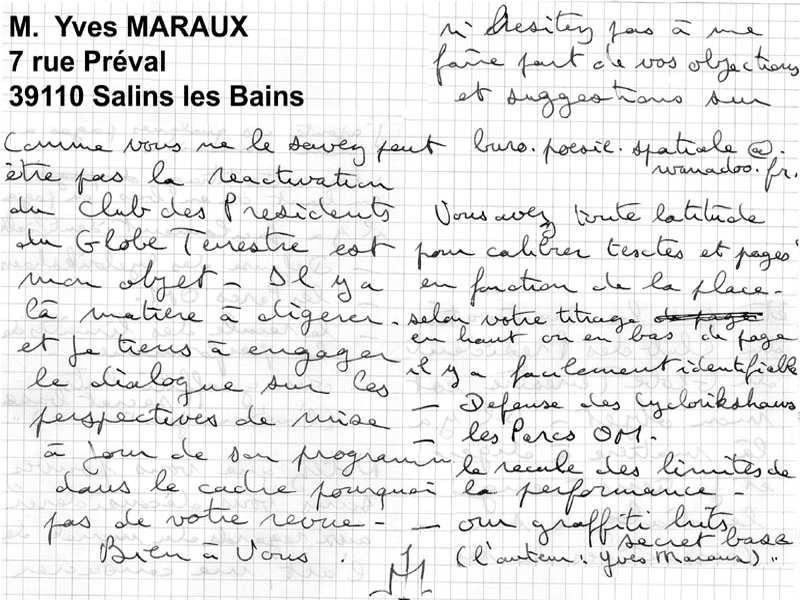 M. Yves MARAUX
7 rue Préval
39110 Salins les Bains
Comme vous ne le savez peut
être pas la reactivation
du Club des Presidents
du Globe Terrestre est
mon objet - Il y a
là matière à digérer.
et je tiens à engager
le dialogue sur les
perspectives de mise
à jour de son programme
dans le cadre pourquoi
pas de votre revue -
Bien à Vous.
n'hesitez pas à me
faire part de vos objections
et suggestions sur
buro.poesie.spatiale@.
wanadoo.fr.
Vous avez toute latitude
pour calibrer tesctes et pages
en fonction de la place.
selon votre titrage
en haut ou en bas de page
il y a facilement identifiable
- Defense des Cyclorikshaws,
- les Parcs OM.
- la recule des limites de
la performance -
- our graffiti hits
secret base
(l'auteur: Yves Maraux)..